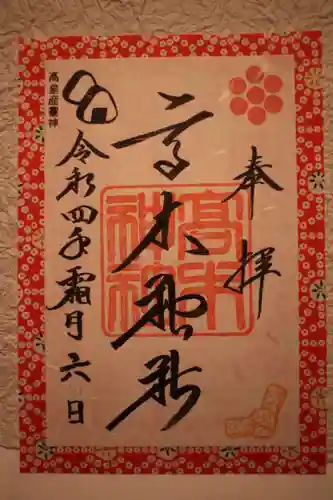 奉拝
高木神社
高木神社
令和四年霜月六日
高皇産霊神